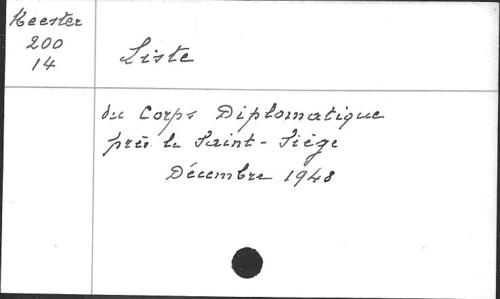 Keester
200
14
Liste
du Corps Diplomatique
près le Saint-Siège
Décembre 1948